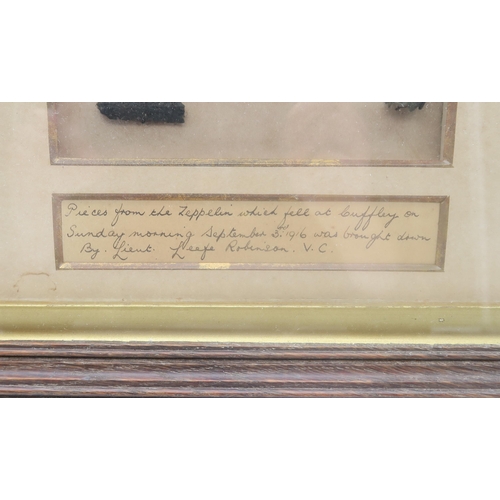 Pieces from the Zeppelin which fell at Cuffley on
Sunday morning September 3rd 1916 was brought down
By. Lieut. Leefe Robinson. V.C.